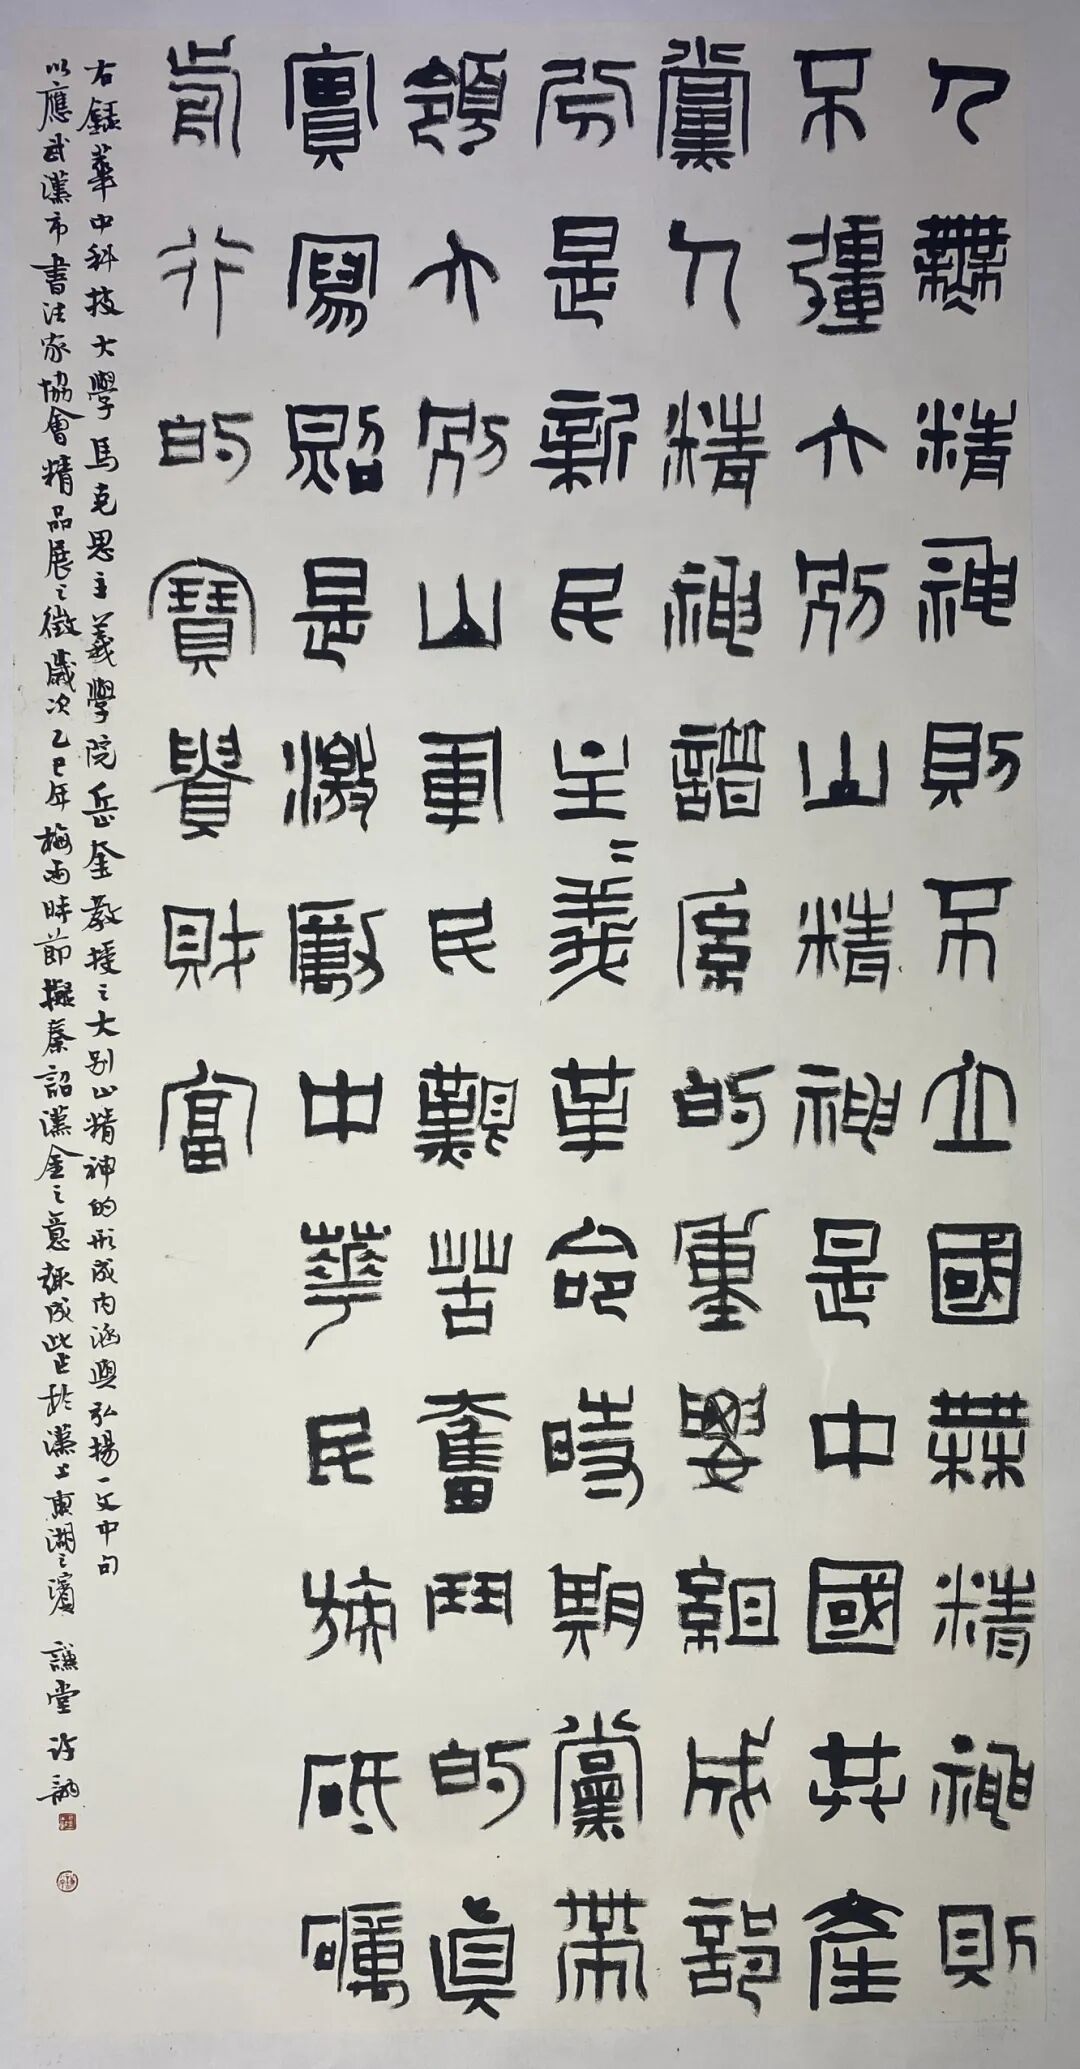 人無精神則不立國無精神則
不彊大别山精神是中國共產
黨人精神譜系的重要組成部
分是新民主〻義革命時期黨帶
領大别山軍民艱苦奮鬥的真
實寫照是激勵中華民族砥礪
前行的寶貴財富
右録華中科技大學馬克思主義學院岳奎教授之大别山精神的形成内涵與弘揚一文中句
以應武漢市書法家協會精品展之徵歲次乙巳年梅雨時節擬秦詔漢金之意趣成此於漢上東湖之濱 謙堂許